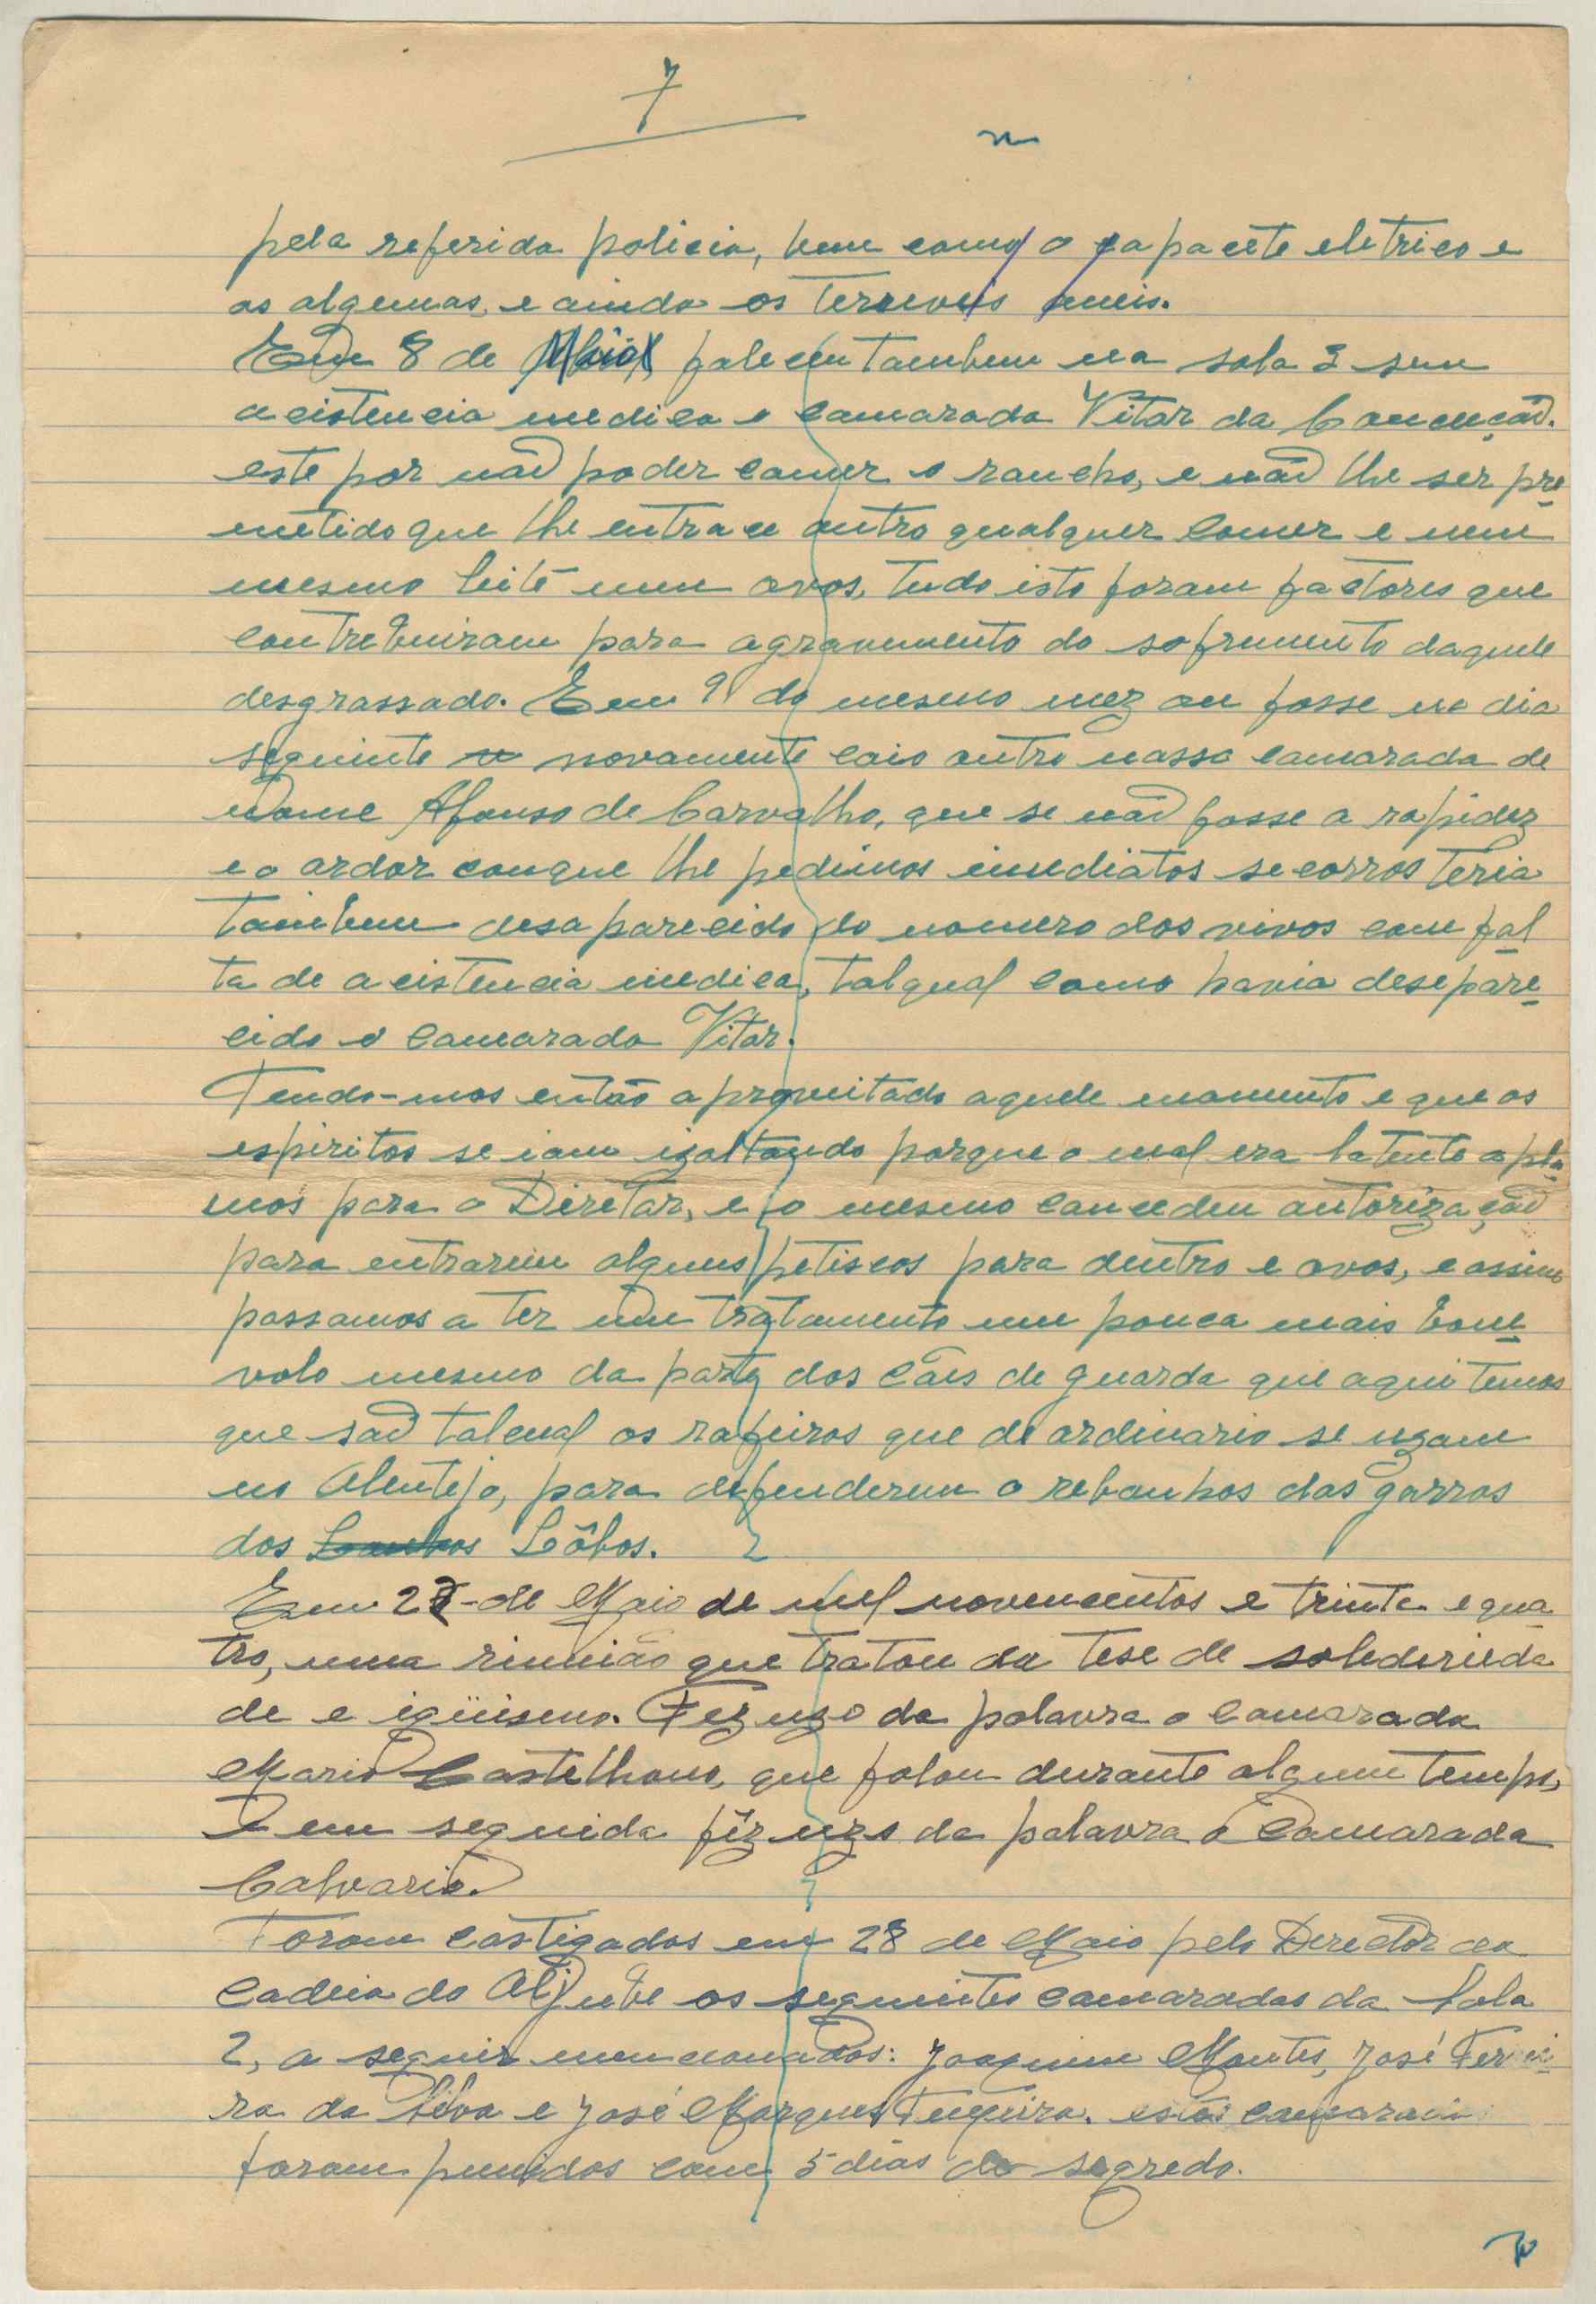 7
pela referida policia, bem como o capacete eletrico e
as algemas, e ainda os terreveis aneis.
Em 8 de Maio faleceu tambem na sala 3 sem
acistencia medica o camarada Vitor da Conceição.
este por não poder comer o rancho, e não lhe ser pre
metido que lhe entrace outro qualquer comer e nem
mesmo leite nem ovos, tudo isto foram factores que
contrebuiram para agravemento do sofrimento daquele
desgrassado. Em 9 do mesmo mez ou fosse no dia
seguinte novamente caio outro nosso camarada de
nome Afonso de Carvalho, que se não fosse a rapidez
e o ardor conque lhe pedimos imediatos secorros teria
tambem desaparecido do nomero dos vivos com fal
ta de acistencia medica, talqual como havia desepare
cido o camarada Vitor.
Tendo-mos então aproveitado aquele momento e que os
espiritos se iam izaltando porque o mal era latente apla
mos para o Diretor, e o mesmo concedeu autorização
para entrarem alguns petiscos para dentro e ovos, e assim
passamos a ter um tratamento um pouca mais bene
volo mesmo da parte dos cães de guarda que aqui temos
que são talcual os rafeiros que de ordinario se uzam
no Alentejo, para defenderem o rebanhos das garras
dos Lôbos.
Em 27-de Maio de mil novencentos e trinta e qua
tro, uma riunião que tratou da tese de solederieda
de e igüismo. Fez uzo da palavra o Camarada
Mario Castelhano, que falou durante algum tempo,
E em seguida fêz uzo da palavra o Camarada
Calvario.
Foram castigados em 28 de Maio pelo Director da
Cadeia do Aljube os seguintes camaradas da Sala
2, a seguir mencionados: Joaquim Montes, José Ferrei
ra da Silva e José Marques Teixeira. estes camaradas
foram punidos com 5 dias de segredo.